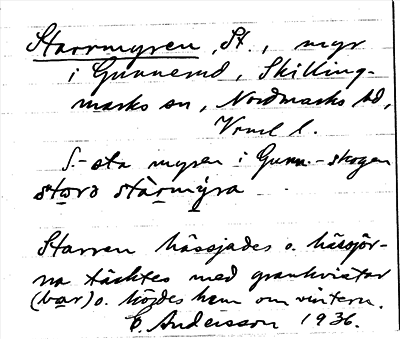 Starrmyren, St., myr
i Gunnerud, Skilling-
marks sn, Nordmarks hd,
Vrml l.
S.-sta myren i Gunn.-skogen
starə stàrmýra
Starren hässjades o. hässjor-
na täcktes med grankvistar
(bar) o. kördes hem om vintern.
E. Andersson 1936.